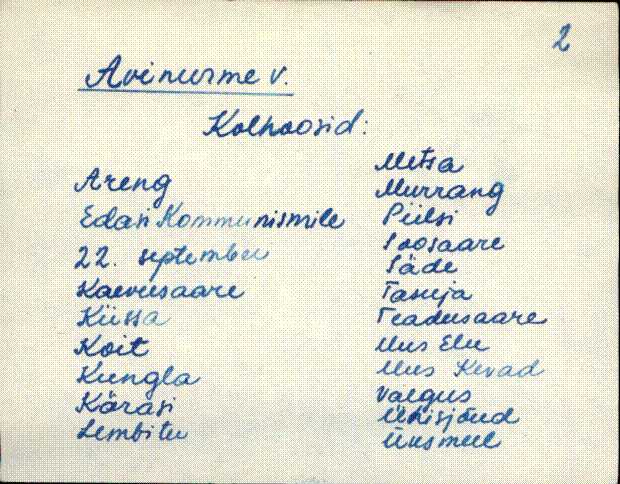 2
Avinurme v.
Kolhoosid:
Areng
Edasi Kommunismile
22. september
Kaevusaare
Kiissa
Koit
Kungla
Kõrasi
Lembitu
Metsa
Murrang
Piilsi
Soosaare
Säde
Tasuja
Teadusaare
Uus Elu
Uus Kevad
Valgus
Ühisjõud
Üksmeel